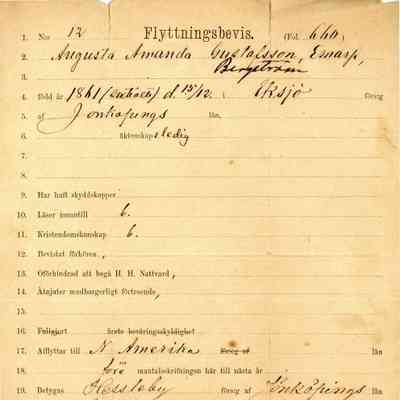 1. N:o 12 Flyttningsbevis. (Fol. 660)
2. Augusta Amanda Gustafsson, Emarp,
3. Bergström
4. född år 1861 d. 15/12. i Eksjö försg
5. af Jönköpings län.
6. äktenskap sledig
7.
8.
9. Har haft skyddskoppor
10. Läser innantill b.
11. Kristendomskunskap b.
12. Bevistat förhören,
13. Oförhindrad att begå H. H. Nattvard,
14. Åtnjuter medborgerligt förtroende,
15.
16. Fullgjort årets beväringsskyldighet
17. Afflyttar till N. Amerika försg af län
18. före mantalsskrifningen här till nästa år
19. Betygas Hessleby försg af Jönköpings län